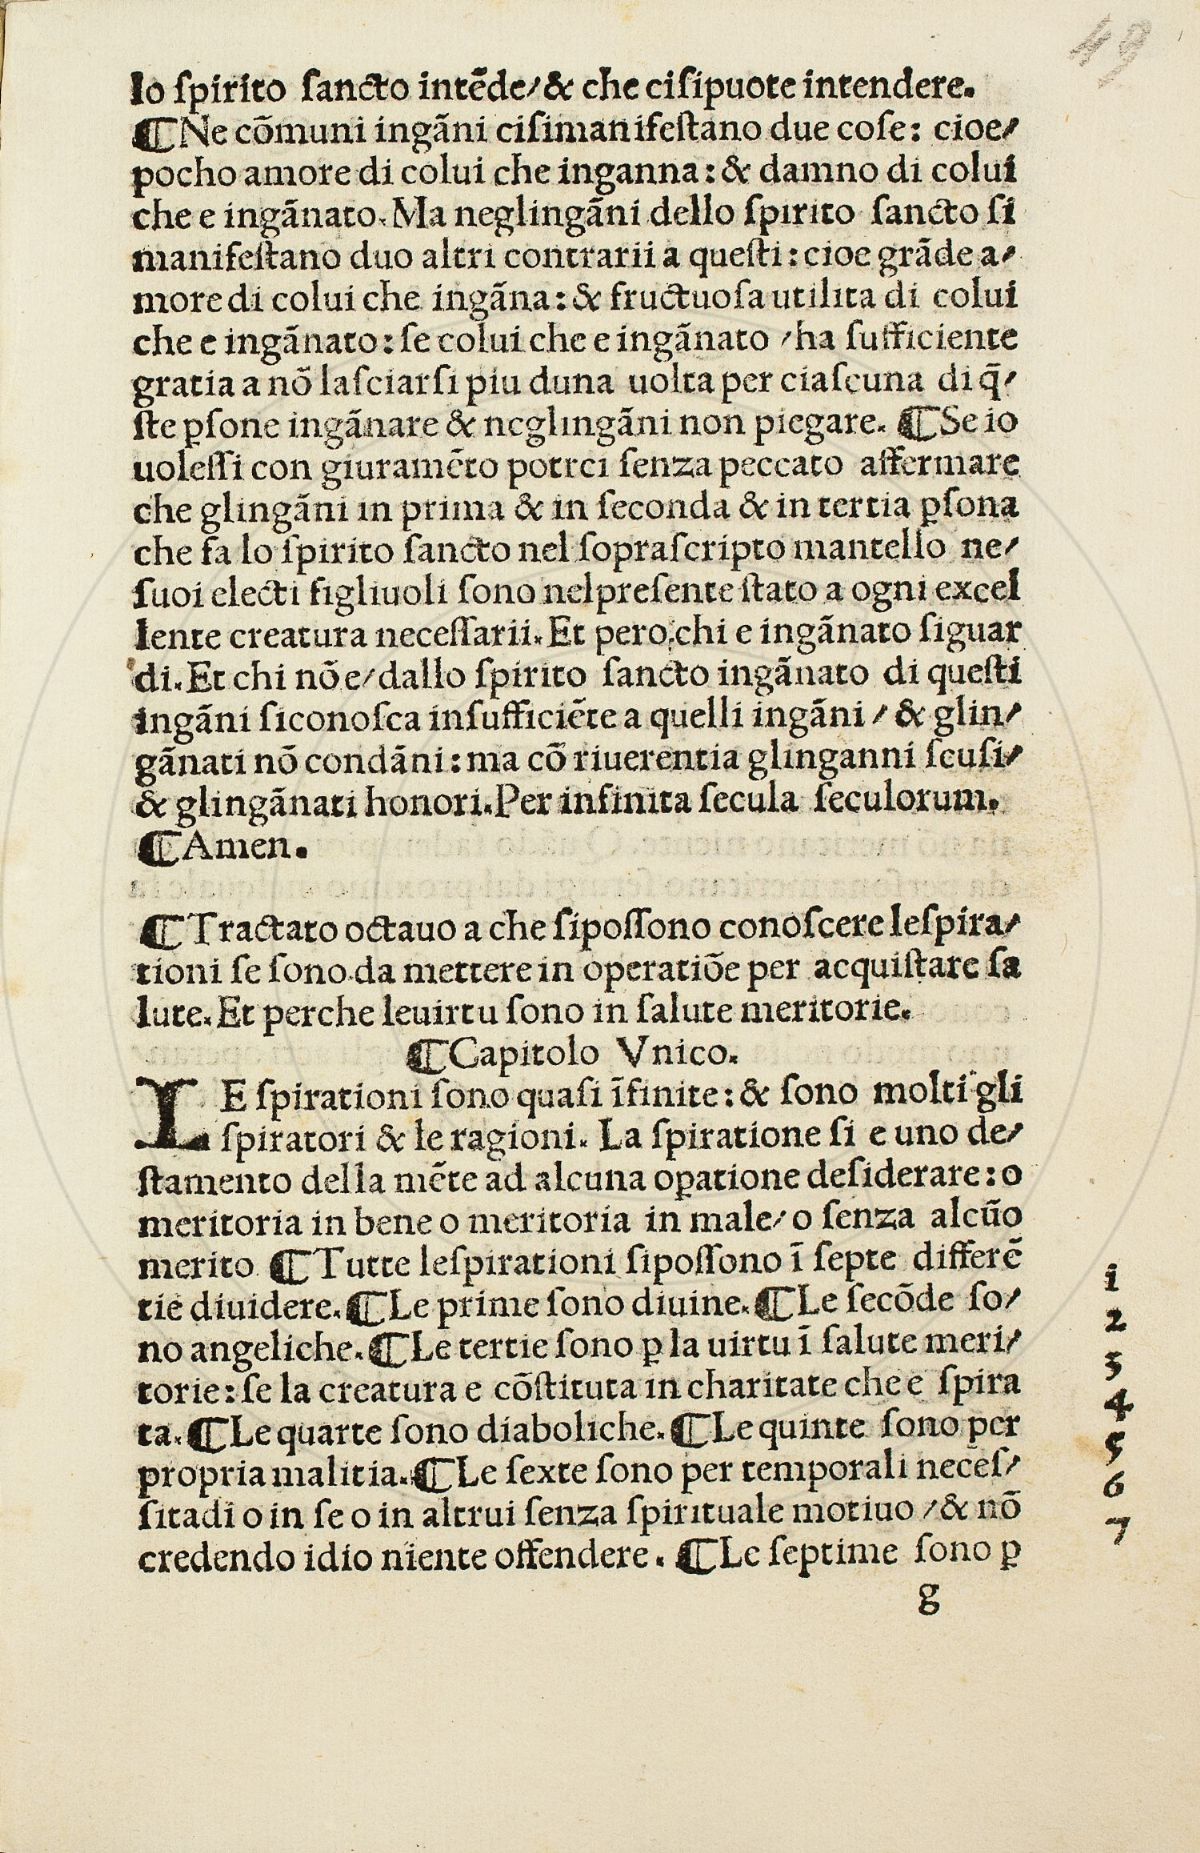 49
lo ſpirito ſancto intẽde/ & che ciſipuote intendere.
¶Ne cõmuni ingãni ciſimanifeſtano due coſe: cioe/
pocho amore di colui che inganna: & damno di colui
che e ingãnato. Ma neglingãni dello ſpirito ſancto ſi
manifeſtano duo altri contrarii a queſti: cioe grãde a/
more di colui che ingãna: & fructuoſa utilita di colui
che e ingãnato: ſe colui che e ingãnato /ha ſufficiente
gratia a nõ laſciarſi piu duna uolta per ciaſcuna di q̃/
ſte ꝑſone ingãnare & neglingãni non piegare. ¶Se io
uoleſſi con giuramẽto potrei ſenza peccato affermare
che glingãni in prima & in ſeconda & in tertia ꝑſona
che fa lo ſpirito ſancto nel ſopraſcripto mantello ne/
ſuoi electi figliuoli ſono nelpreſente ſtato a ogni excel
lente creatura neceſſarii. Et pero chi e ingãnato ſiguar
di. Et chi nõ e/ dallo ſpirito ſancto ingãnato di queſti
ingãni ſiconoſca inſufficiẽte a quelli ingãni / & glin/
gãnati nõ condãni: ma cõ riuerentia glinganni ſcuſi/
& glingãnati honori. Per infinita ſecula ſeculorum.
¶Amen.
¶Tractato octauo a che ſipoſſono conoſcere leſpira/
tioni ſe ſono da mettere in operatiõe per acquiſtare ſa
lute. Et perche leuirtu ſono in ſalute meritorie.
¶Capitolo Vnico.
LE ſpirationi ſono quaſi ĩfinite: & ſono molti gli
ſpiratori & le ragioni. La ſpiratione ſi e uno de/
ſtamento della mẽte ad alcuna oꝑatione deſiderare: o
meritoria in bene o meritoria in male/ o ſenza alcũo
merito ¶Tutte leſpirationi ſipoſſono ĩ ſepte differẽ
tie diuidere. ¶Le prime ſono diuine. ¶Le ſecõde ſo/
no angeliche. ¶Le tertie ſono ꝑ la uirtu ĩ ſalute meri/
torie: ſe la creatura e cõſtituta in charitate che e ſpira
ta. ¶Le quarte ſono diaboliche. ¶Le quinte ſono per
propria malitia. ¶Le ſexte ſono per temporali neceſ/
ſitadi o in ſe o in altrui ſenza ſpirituale motiuo / & nõ
credendo idio niente offendere. ¶Le ſeptime ſono ꝑ
1
2
3
4
5
6
7
g